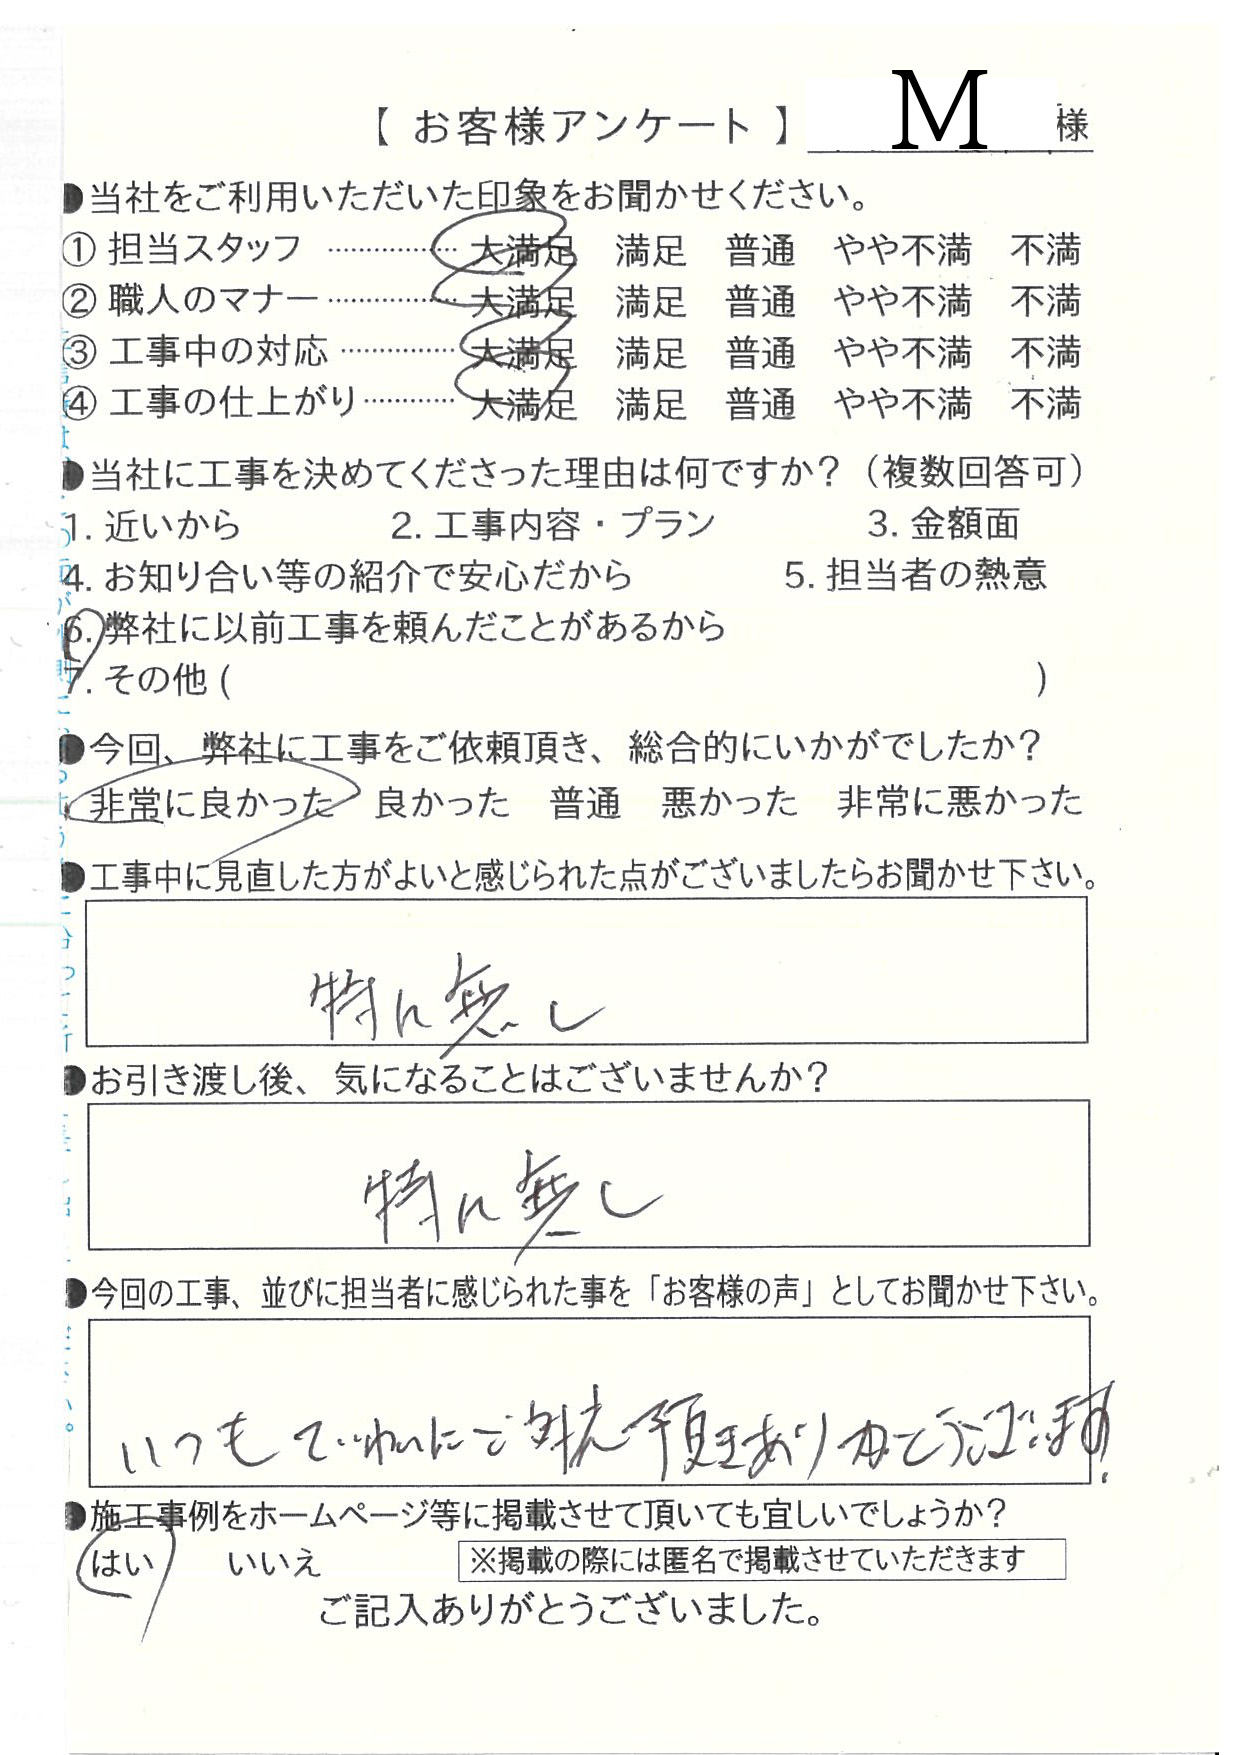 【 お客様アンケート 】 M 様
●当社をご利用いただいた印象をお聞かせください。
① 担当スタッフ ················ 大満足 満足 普通 やや不満 不満
② 職人のマナー ················ 大満足 満足 普通 やや不満 不満
③ 工事中の対応 ·············· 大満足 満足 普通 やや不満 不満
④ 工事の仕上がり ············ 大満足 満足 普通 やや不満 不満
●当社に工事を決めてくださった理由は何ですか？（複数回答可）
1. 近いから 2. 工事内容・プラン 3. 金額面
4. お知り合い等の紹介で安心だから 5. 担当者の熱意
6. 弊社に以前工事を頼んだことがあるから
7. その他 ( )
●今回、弊社に工事をご依頼頂き、総合的にいかがでしたか？
非常に良かった 良かった 普通 悪かった 非常に悪かった
●工事中に見直した方がよいと感じられた点がございましたらお聞かせ下さい。
特に無し
●お引き渡し後、気になることはございませんか？
特に無し
●今回の工事、並びに担当者に感じられた事を「お客様の声」としてお聞かせ下さい。
いつもていねいにご対応頂きありがとうございます!
●施工事例をホームページ等に掲載させて頂いても宜しいでしょうか？
はい いいえ ※掲載の際には匿名で掲載させていただきます
ご記入ありがとうございました。